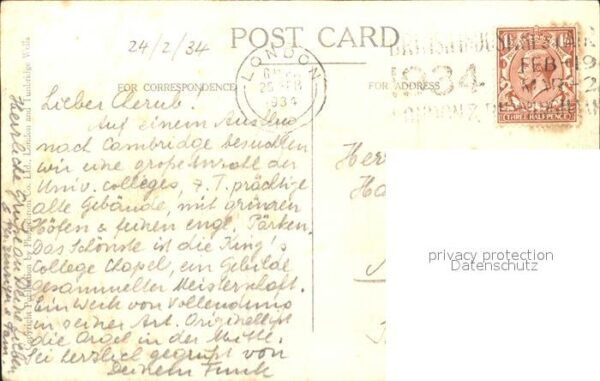 24/2/34
POST CARD
LONDON
25 FEB
1934
BRITISH INDUSTRIES FAIR
1934
FEB 19
MAR 2
LONDON & BIRMINGHAM
THREE HALFPENCE
FOR CORRESPONDENCE
FOR ADDRESS
Lieber Cherub!
Auf einem Ausflug
nach Cambridge besuchten
wir eine große Anzahl der
Univ. colleges, z.T. prächtige
alte Gebäude, mit grünen
Höfen & feinen engl. Parken.
Das Schönste ist die King's
College Chapel, ein Gebilde
gesammelter Meisterschaft.
Ein Werk von Vollendung
in seiner Art. Originell ist
die Orgel in der Mitte.
Sei herzlich gegrüßt von
Deinem Funk
Herr
Ha
Herzliche Grüße an Deine Lieben
Copyright Publication by Photochrom Co. Ltd., London and Tunbridge Wells
privacy protection
Datenschutz